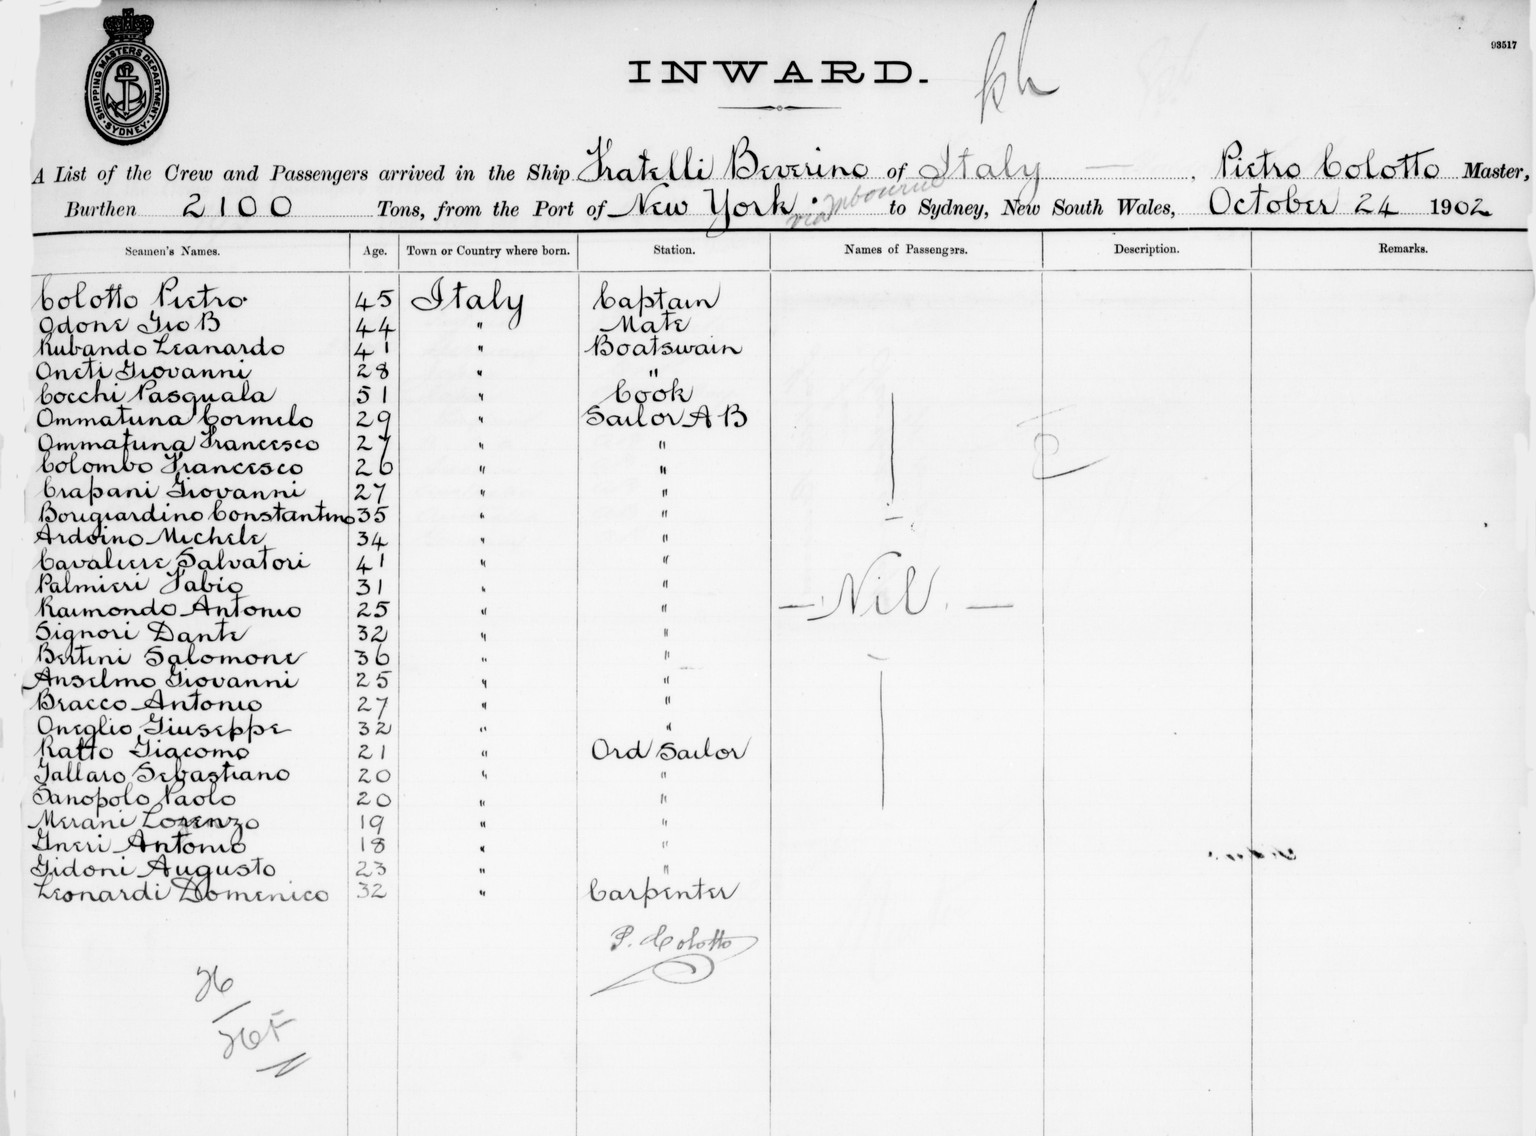 93517
SHIPPING MASTERS DEPARTMENT
SYDNEY
INWARD.
A List of the Crew and Passengers arrived in the Ship Fratelli Beverino of Italy — , Pietro Colotto Master,
Burthen 2100 Tons, from the Port of New York via Mbourne to Sydney, New South Wales, October 24 1902
Seamen's Names. Age. Town or Country where born. Station. Names of Passengers. Description. Remarks.
Colotto Pietro 45 Italy Captain
Odone Gio B 44 " Mate
Rubando Leanardo 41 " Boatswain
Oneti Giovanni 28 " "
Cocchi Pasquala 51 " Cook
Ommatuna Cormelo 29 " Sailor A B
Ommatuna Francesco 27 " "
Colombo Francesco 26 " "
Crapani Giovanni 27 " "
Borigiardino Constantino 35 " "
Ardoino Michele 34 " "
Cavaliere Salvatori 41 " "
Palmieri Fabio 31 " "
Raimondo Antonio 25 " " — Nil. —
Signori Dante 32 " "
Bertini Salomone 36 " "
Anselmo Giovanni 25 " "
Bracco Antonio 27 " "
Oneglio Giuseppe 32 " "
Ratto Giacomo 21 " Ord Sailor
Gallaro Sebastiano 20 " "
Sanopolo Paolo 20 " "
Merani Lorenzo 19 " "
Gneri Antonio 18 " "
Gidoni Augusto 23 " "
Leonardi Domenico 32 " Carpenter
P. Colotto
26
26 F